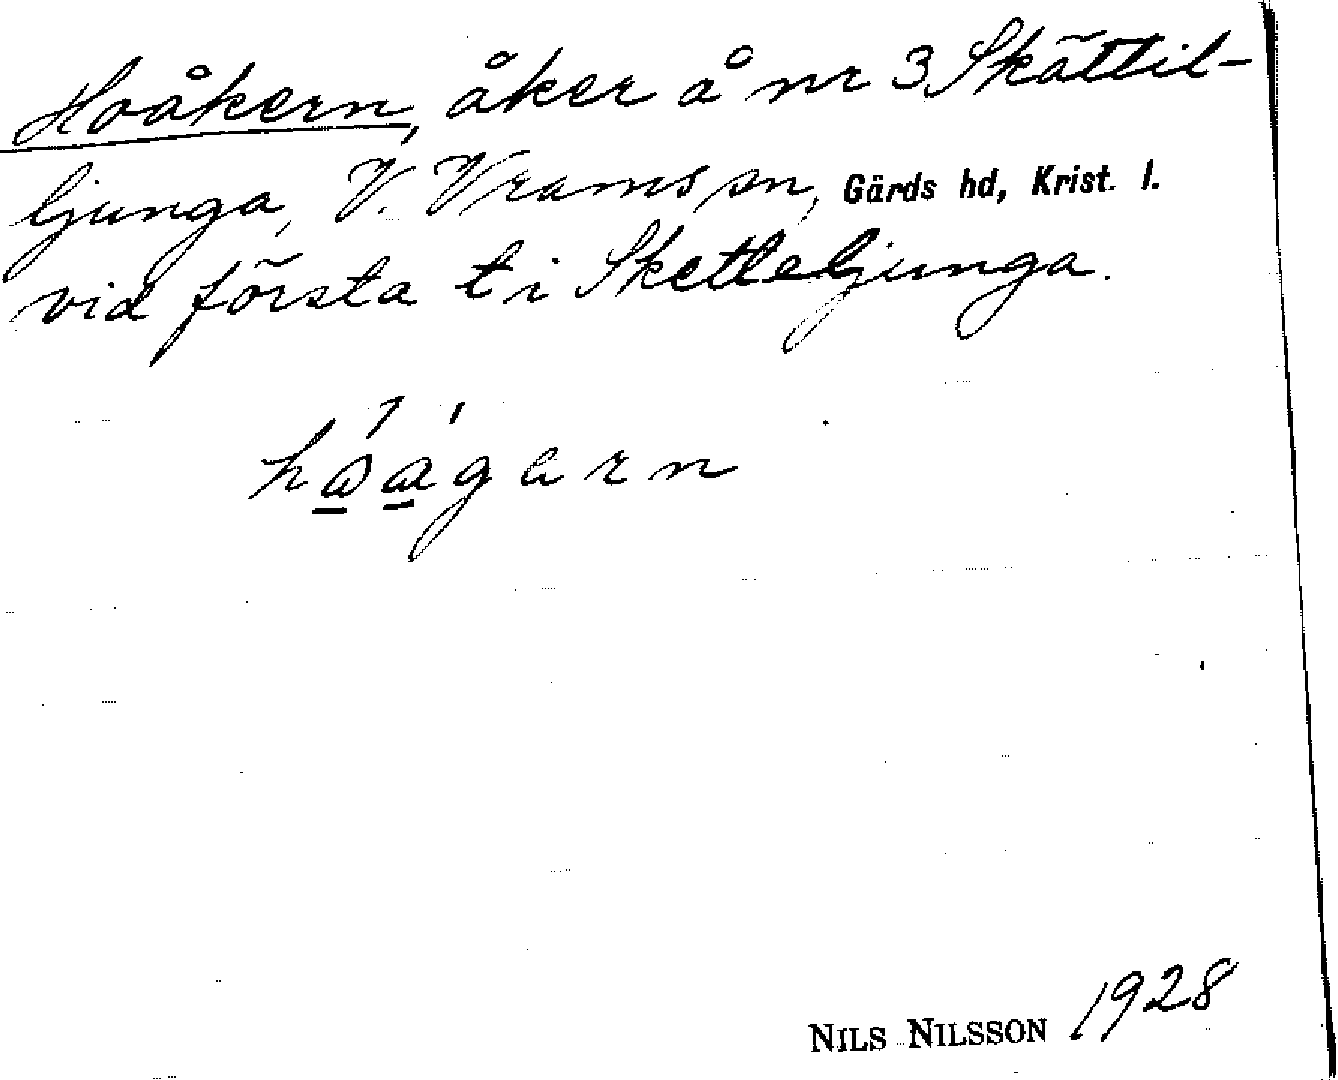 Hoåkern, åker å nr 3 Skättil-
ljunga, V. Vrams sn, Gärds hd, Krist. l.
vid första t i Sketteljunga.
NILS NILSSON 1928